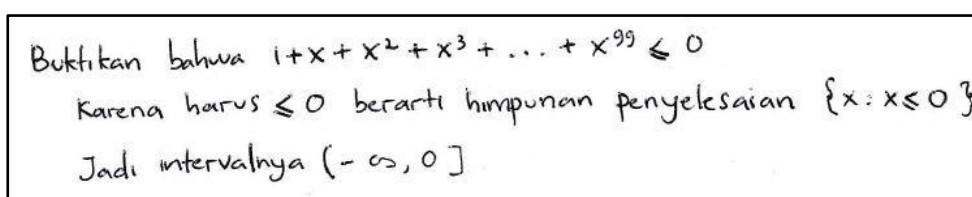 Buktikan bahwa 1+x+x²+x³+...+x⁹⁹ ≤ 0
Karena harus ≤ 0 berarti himpunan penyelesaian {x : x ≤ 0}
Jadi intervalnya (-∞, 0]